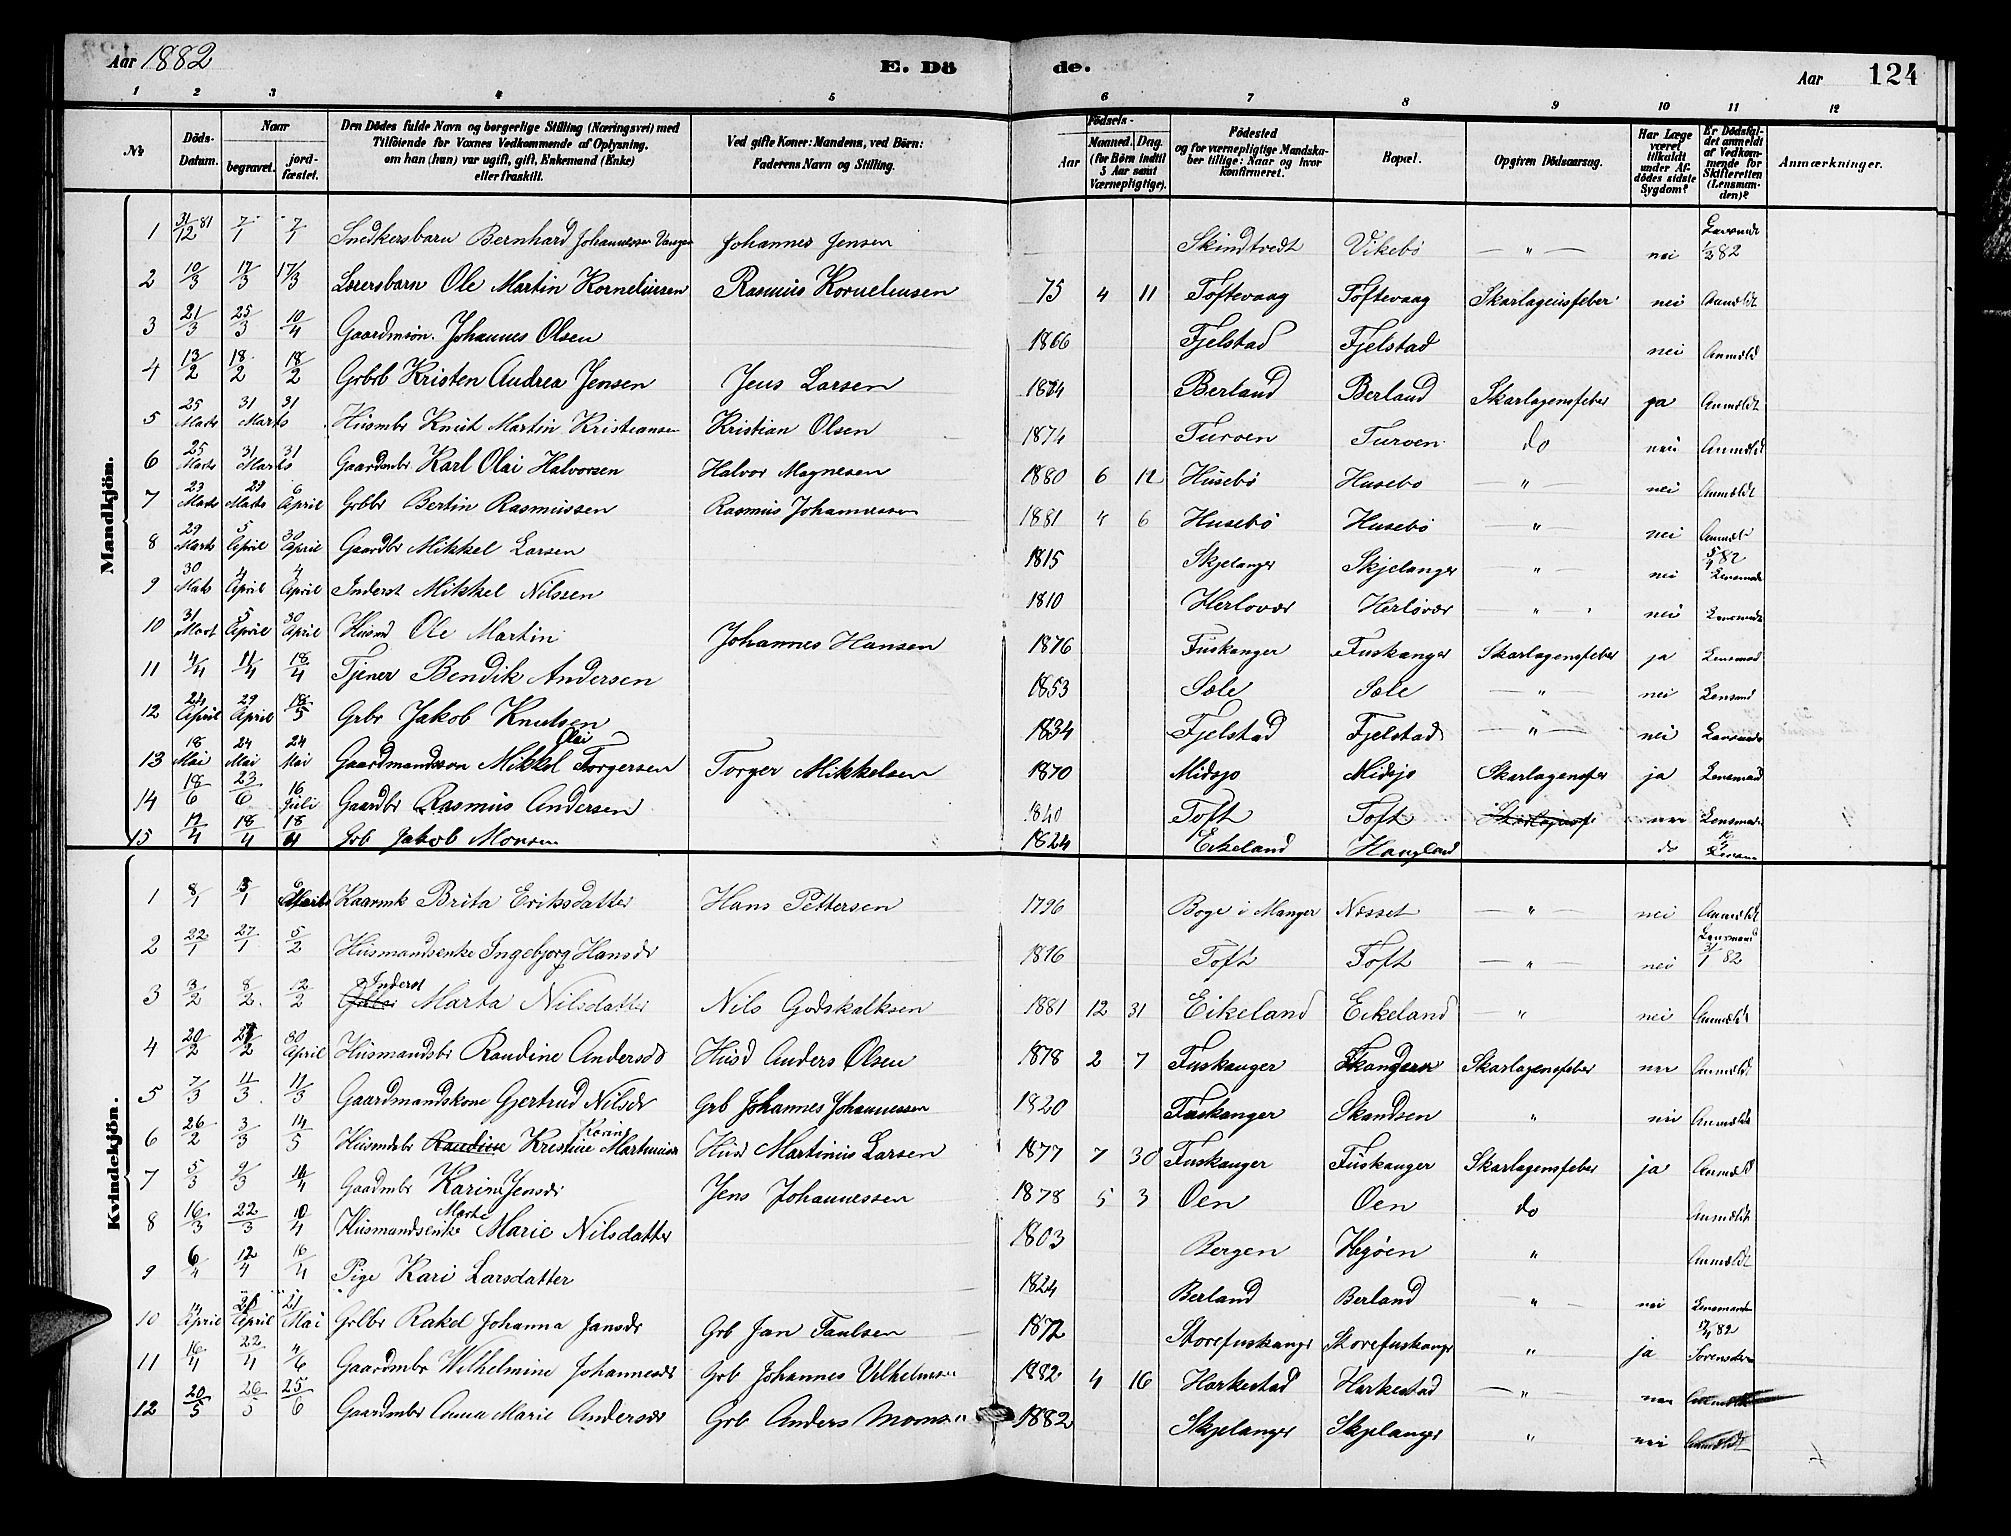 Aar 1882 E. Dö de. Aar 124
1 2 3 4 5 6 7 8 9 10 11 12
No Döds-Datum. Naar begravet. jordfæstet. Den Dödes fulde Navn og borgerlige Stilling (Næringsvei) med Tilföiende for Voxnes Vedkommende af Oplysning, om han (hun) var ugift, gift, Enkemand (Enke) eller fraskilt. Ved gifte Koner: Mandens, ved Börn: Faderens Navn og Stilling. Födsels- Aar Maaned. Dag. (for Börn indtil 5 Aar samt Værnepligtige). Födested og for værnepligtige Mandskaber tillige: Naar og hvor konfirmeret. Bopæl. Opgiven Dödsaarsag. Har Læge været tilkaldt under Afdödes sidste Sygdom? Er Dödsfaldet anmeldt af Vedkommende for Skifteretten (Lensmanden)? Anmærkninger.
Mandkjön.
1 31/12 81 7/1 7/1 Snedkersbarn Bernhard Johannessen Johannes Jensen Skindtvedt Vikebö — " — nei 1/3 82
2 10/3 17/3 17/3 Ole Martin Korneliussen Rasmus Korneliusen 75 4 11 Toftevaag Toftevaag Skarlagensfeber nei Anmeldt
3 21/3 25/3 10/4 Johannes Olsen 1866 Fjelstad Fjelstad nei Anmeldt
4 13/2 18/2 18/2 Grbrb Kristen Andrea Jensen Jens Larsen 1874 Berland Berland Skarlagensfeber ja Anmeldt
5 25 Marts 31 Marts 31 Husmbr Knut Martin Kristiansen Kristian Olsen 1874 Turoen Turoen do nei Anmeldt
6 25 Marts 31 Marts 31 Gaardmbr Karl Olai Halvorsen Halvor Magnesen 1880 6 12 Husebö Husebo — " — nei Anmeldt
7 23 Marts 29 Marts 6 April Grbbr Bertin Rasmussen Rasmus Johannessen 1881 " 6 Husebö Husebö " nei Anmeldt
8 29 Marts 5 April 30 April Gaardbr Mikkel Larsen 1815 Skjelanger Skjelanger " — nei 5/4 82 Lensmand
9 30 Mats 4 April 4 April Inderst Mikkel Nilssen 1810 Herlovær Herlövær — " nei Lensmand
10 31 Mart 5 April 30 April Husmd Ole Martin Johannes Hansen 1876 Fuskanger Fuskanger Skarlagensfeber ja Lensmad
11 4/4 11/4 18/4 Tjener Bendik Andersen 1853 Sæle Sæle — " — nei Lensmd
12 24 April 29 April 18/5 Grbr Jakob Knutsen 1834 Fjelstad Fjelstad — " — nei Lensmand
13 18 Mai 24 Mai 24 Mai Gaardmandsson Mikkel Olai Torgersen Torger Mikkelsen 1870 Midsjo Midsjo Skarlagensfer ja Lensmand
14 18/6 23/6 16 Juli Gaardbr Rasmus Andersen 1840 Toft Toft Lensmand
15 17/4 18/4 18/4 Grb Jakob Monsen 1824 Eikeland Haugland do
Kvindekjön.
1 8/1 /1 Marts Brita Eriksdatter Hans Pettersen 1796 Boge i Manger Nesset — " — nei Anmeldt
2 22/1 27/1 5/2 Husmandsenke Ingebjorg Hansdr 1816 Toft Toft — " — nei Lensmand 31/1 82
3 3/2 8/2 12/2 Inderst Marta Nilsdatter Nils Godskalksen 1881 12 31 Eikeland Eikeland " nei Anmeldt
4 20/2 27/2 30 April Husmandsbr Raudine Andersdr Husd Anders Olsen 1878 2 7 Fuskanger Skarlagensfeber nei Anmeldt
5 7/3 11/3 11/3 Gaardmandskone Gjertrud Nilsdr Grb Johannes Johannessen 1820 Fuskanger Skandsen " nei Anmeldt
6 26/2 3/3 14/5 Husmdsbr Raudine Krestine Karine Martinusdr Husd Martinus Larsen 1877 7 30 Fuskanger Fuskanger Skarlagensfeber ja Anmeldt
7 5/3 9/3 10/4 Gaardmbr Karine Jensdr Jens Johannessen 1878 5 3 Oen Oen do Anmeldt
8 16/3 22/3 10/4 Husmandsenke Marte Marie Nilsdatter 1803 Bergen Hegöen " Anmeldt
9 6/4 12/4 16/4 Pige Kari Larsdatter 1824 Berland Berland " nei Lensmanden
10 14 April 21 April 21 Mai Grbbr Rakel Johanna Jansdr Grb Jan Paulsen 1872 Storefuskanger Storefuskanger " ja 17/4 82
11 16/4 22/4 4/6 Gaardmbr Wilhelmine Johannesdr Grb Johannes Vilhelmsen 1882 4 16 Harkestad Harkestad — " — nei Anmeldt
12 20/5 26/5 25/6 Gaardmbr Anna Marie Andersdr Grb Anders Monsen 1882 Skjelanger Skjelanger " nei Anmeldt